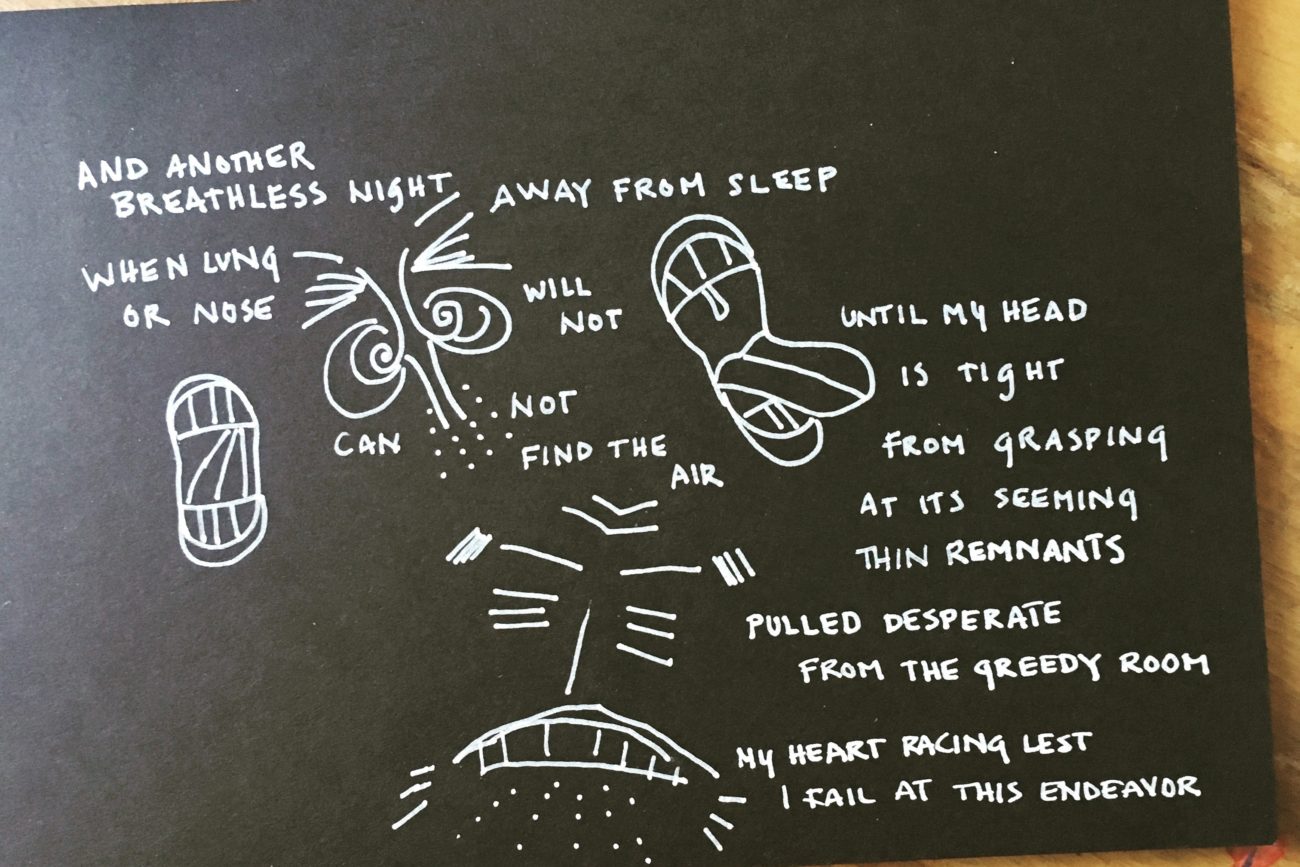 AND ANOTHER
BREATHLESS NIGHT AWAY FROM SLEEP
WHEN LUNG
OR NOSE
WILL
NOT
CAN NOT
FIND THE
AIR
UNTIL MY HEAD
IS TIGHT
FROM GRASPING
AT ITS SEEMING
THIN REMNANTS
PULLED DESPERATE
FROM THE GREEDY ROOM
MY HEART RACING LEST
I FAIL AT THIS ENDEAVOR